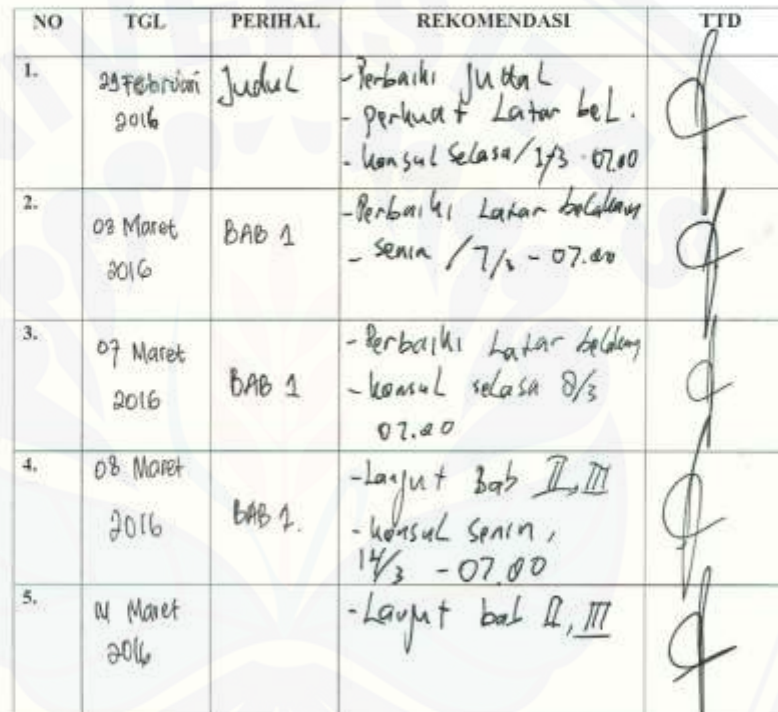 NO TGL PERIHAL REKOMENDASI TTD
1. 29 Februari 2016 Judul - Perbaiki Judul
- perkuat Latar bel.
- konsul Selasa / 1/3 - 07.00
2. 03 Maret 2016 BAB 1 - Perbaiki Latar belakang
- Senin / 7/3 - 07.00
3. 07 Maret 2016 BAB 1 - Perbaiki Latar belakang
- konsul selasa 8/3
07.00
4. 08 Maret 2016 BAB 1. - Lanjut Bab II, III
- konsul Senin,
14/3 - 07.00
5. Maret 2016 - Lanjut bab II, III